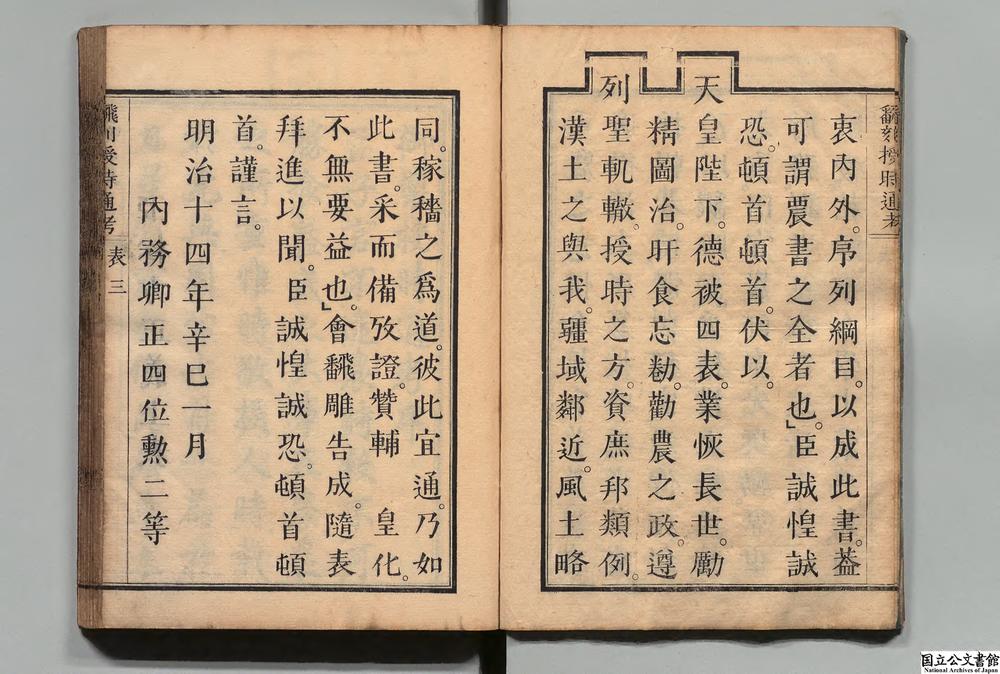 衷內外。序列綱目。以成此書。葢
可謂農書之全者也。」臣誠惶誠
恐。頓首頓首。伏以。
天皇陛下。德被四表。業恢長世。勵
精圖治。旰食忘勌。勸農之政。遵
列聖軌轍。授時之方。資庶邦類例。
漢土之與我。疆域鄰近。風土略
同。稼穡之爲道。彼此宜通。乃如
此書。采而備攷證。贊輔 皇化。
不無要益也。」會飜雕告成。隨表
拜進以聞。臣誠惶誠恐。頓首頓
首。謹言。
明治十四年辛巳一月
內務卿正四位勲二等
授時通考
表 三
国立公文書館
National Archives of Japan